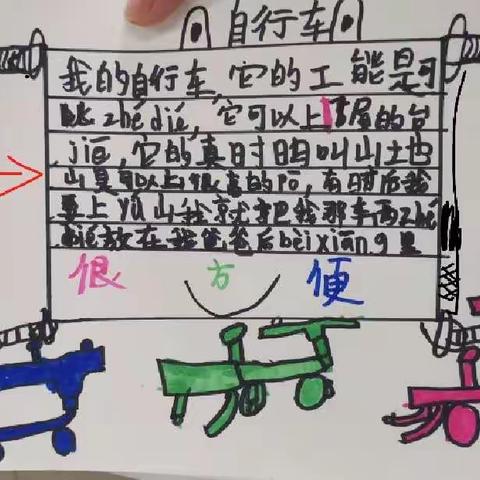 自行车
我的自行车,它的工能是可
以zhédié,它可以上高的台
jiē,它的真时明叫山土也
山是可以上很高的Pō,有时后我
要上yú山我就把我那车两zhé
dié放在我爸爸后bèixiāng里
很方便